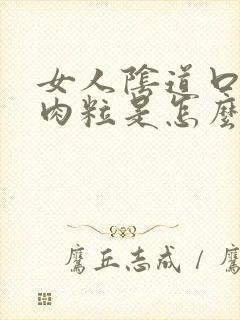 女人陰道口
肉粒是怎麼
鷹丘志成 / 鷹